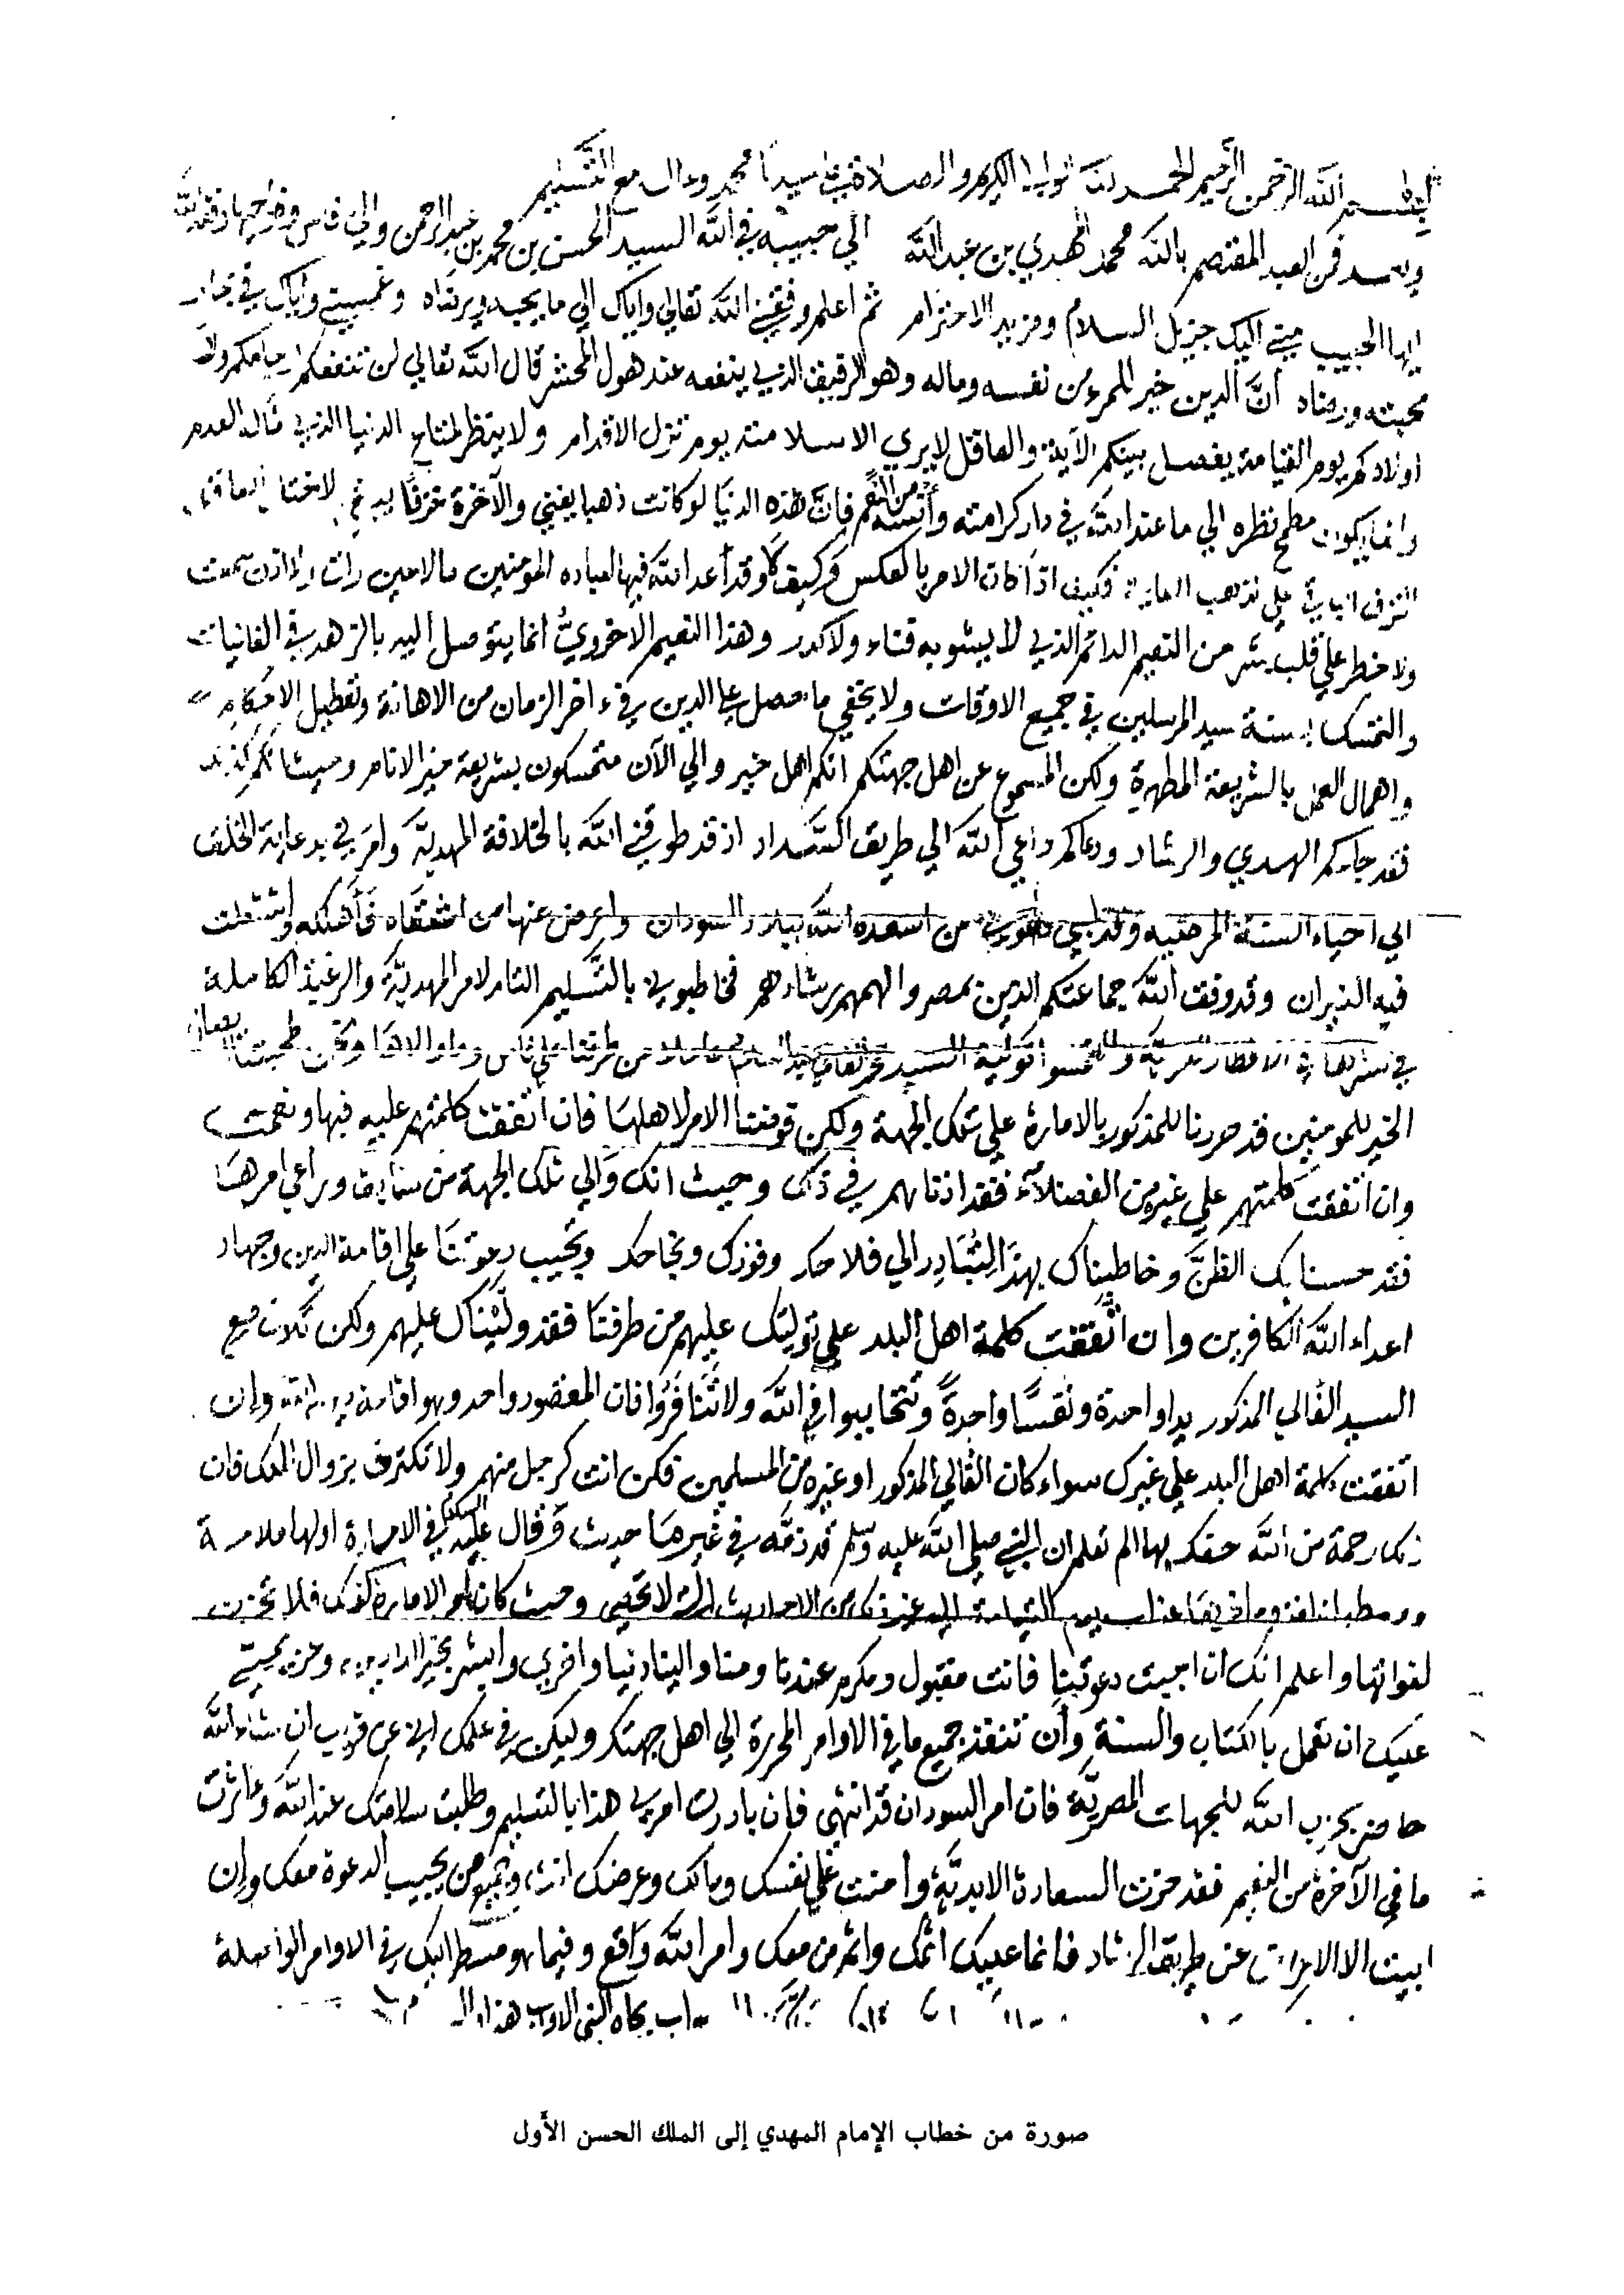 بسم الله الرحمن الرحيم الحمد لله الوالي الكريم والصلاة على سيدنا محمد وءاله مع التسليم
وبعد فمن العبد المعتصم بالله محمد المهدي بن عبد الله الي حبيبه في الله السيد الحسن بن محمد بن عبد الرحمن والي فاس
ايها الحبيب مني اليك جزيل السلام ومزيد الاحترام ثم اعلم وفقني الله تعالي واياك الي ما يحبه ويرضاه وغمسني واياك في بحار
محبته ورضاه أنَّ الدين خير للمرء من نفسه وماله وهو الرفيق الذي ينفعه عند هول المحشر قال الله تعالي لن تنفعكم ارحامكم ولا
اولادكم يوم القيامة يفصل بينكم الآية والعاقل لا يري الا سلامته يوم تزل الاقدام ولا ينظر لمتاع الدنيا الذي مثاله العدم
وانما يكون مطمح نظره الي ما عند الله في دار كرامته وأُنسه من النعم فانَّ هذه الدنيا لو كانت ذهبا يفني والآخرة خزفًا
الخزف علي الذهب فكيف اذا كان الامر بالعكس وكيف لا وقد أعد الله فيها لعباده المؤمنين ما لا عين رات ولا اذن سمعت
ولا خطر علي قلب بشر من النعيم الدائم الذي لا يشوبه فناء ولا كدر وهذا النعيم الاخرويُّ انما يتوصل اليه بالزهد في الفانيات
والتمسك بسنة سيد المرسلين في جميع الاوقات ولا يخفي ما حصل علي الدين في ءاخر الزمان من الاهانة وتعطيل الاحكام
واهمال العمل بالشريعة المطهرة ولكن المسموع عن اهل جهتكم انكم اهل خير والي الآن متمسكون بشريعة خير الانام وحيث انكم كذلك
فقد جاءكم الهدي والرشاد ودعاكم داعي الله الي طريق السَّداد اذ قد طوقني الله بالخلافة المهديّة وامرني بدعاية الخلق
الي احياء السنة المرضيه وقد لبي دعوتي من اسعده الله ببلاد السودان واعرض عنها من اشقاه فأهلكه واشتعلت
فيه النيران وقد وفق الله جماعتكم الذين بمصر والهمهم رشادهم فخاطبوني بالتسليم التام لامر المهديَّة والرغبة الكاملة
في نشرها في الاقطار المغربيَّة والتمسوا تولية السيد محمد الغالي
الخير للمومنين قد حررنا للمذكور بالامارة علي تلك الجهة ولكن فوضنا الامر لاهلها فان اتفقت كلمتهم عليه فبها ونعمت
وان اتفقت كلمتهم علي غيره من الفضلآء فقد اذنا لهم في ذلك وحيث انك والي تلك الجهة من سابق وراعي امرها
فقد حسنا بك الظنَّ وخاطبناك بهذا لِتُبَادِر الي فلاحك وفوزك ونجاحك وتجيب دعوتنا علي اقامة الدين وجهاد
اعداء الله الكافرين وان اتَّفقت كلمة اهل البلد علي توليتك عليهم من طرفنا فقد ولَّيناك عليهم ولكن تكون مع
السيد الغالي المذكور يدا واحدة ونفسًا واحدةً وتتحاببوا في الله ولا تتنافروا فان المقصود واحد وهو اقامة دين الله وإن
اتفقت كلمة اهل البلد علي غيرك سواء كان الغالي المذكور او غيره من المسلمين فكن انت كرجل منهم ولا تكترث بزوال الملك فان
ذلك رحمة من الله حفك بها الم تعلم ان النبي صلى الله عليه وسلم قد ذمَّه في غيرها حديث فقال عليه السلام في الامارة اولها ملامة
ووسطها ندامة وءاخرها عذاب يوم القيامة الي غير ذلك من الاحاديث التي لا تحصي وحيث كان امر الامارة كذلك فلا تحزن
لفواتها واعلم انك ان اجبت دعوتنا فانت مقبول ومكرم عندنا ومنا والينا دنيا واخري وابشر بخير الدارين
عليك ان تعمل بالكتاب والسنة وأن تنفذ جميع ما في الاوامر المحررة الي اهل جهتك وليكن في علمك اني عن قريب ان شاء الله
حاضر بحزب الله للجهات المصريّة فان امر السودان قد انتهي فان بادرت امري هذا بالتسليم وطلبت سلامتك عند الله وءاثرت
ما في الآخرة من النعيم فقد حزت السعادة الابديَّة وأمنت علي نفسك ومالك وعرضك انت وجميع من يجيب الدعوة معك وإن
ابيت الا الاعراض عن طريق الرشاد فانما عليك اثمك واثم من معك وامر الله واقع وفيما هو مسطر اليك في الاوامر الواصلة
بجاه النبي الاواب هذا
صورة من خطاب الإمام المهدي إلى الملك الحسن الأول